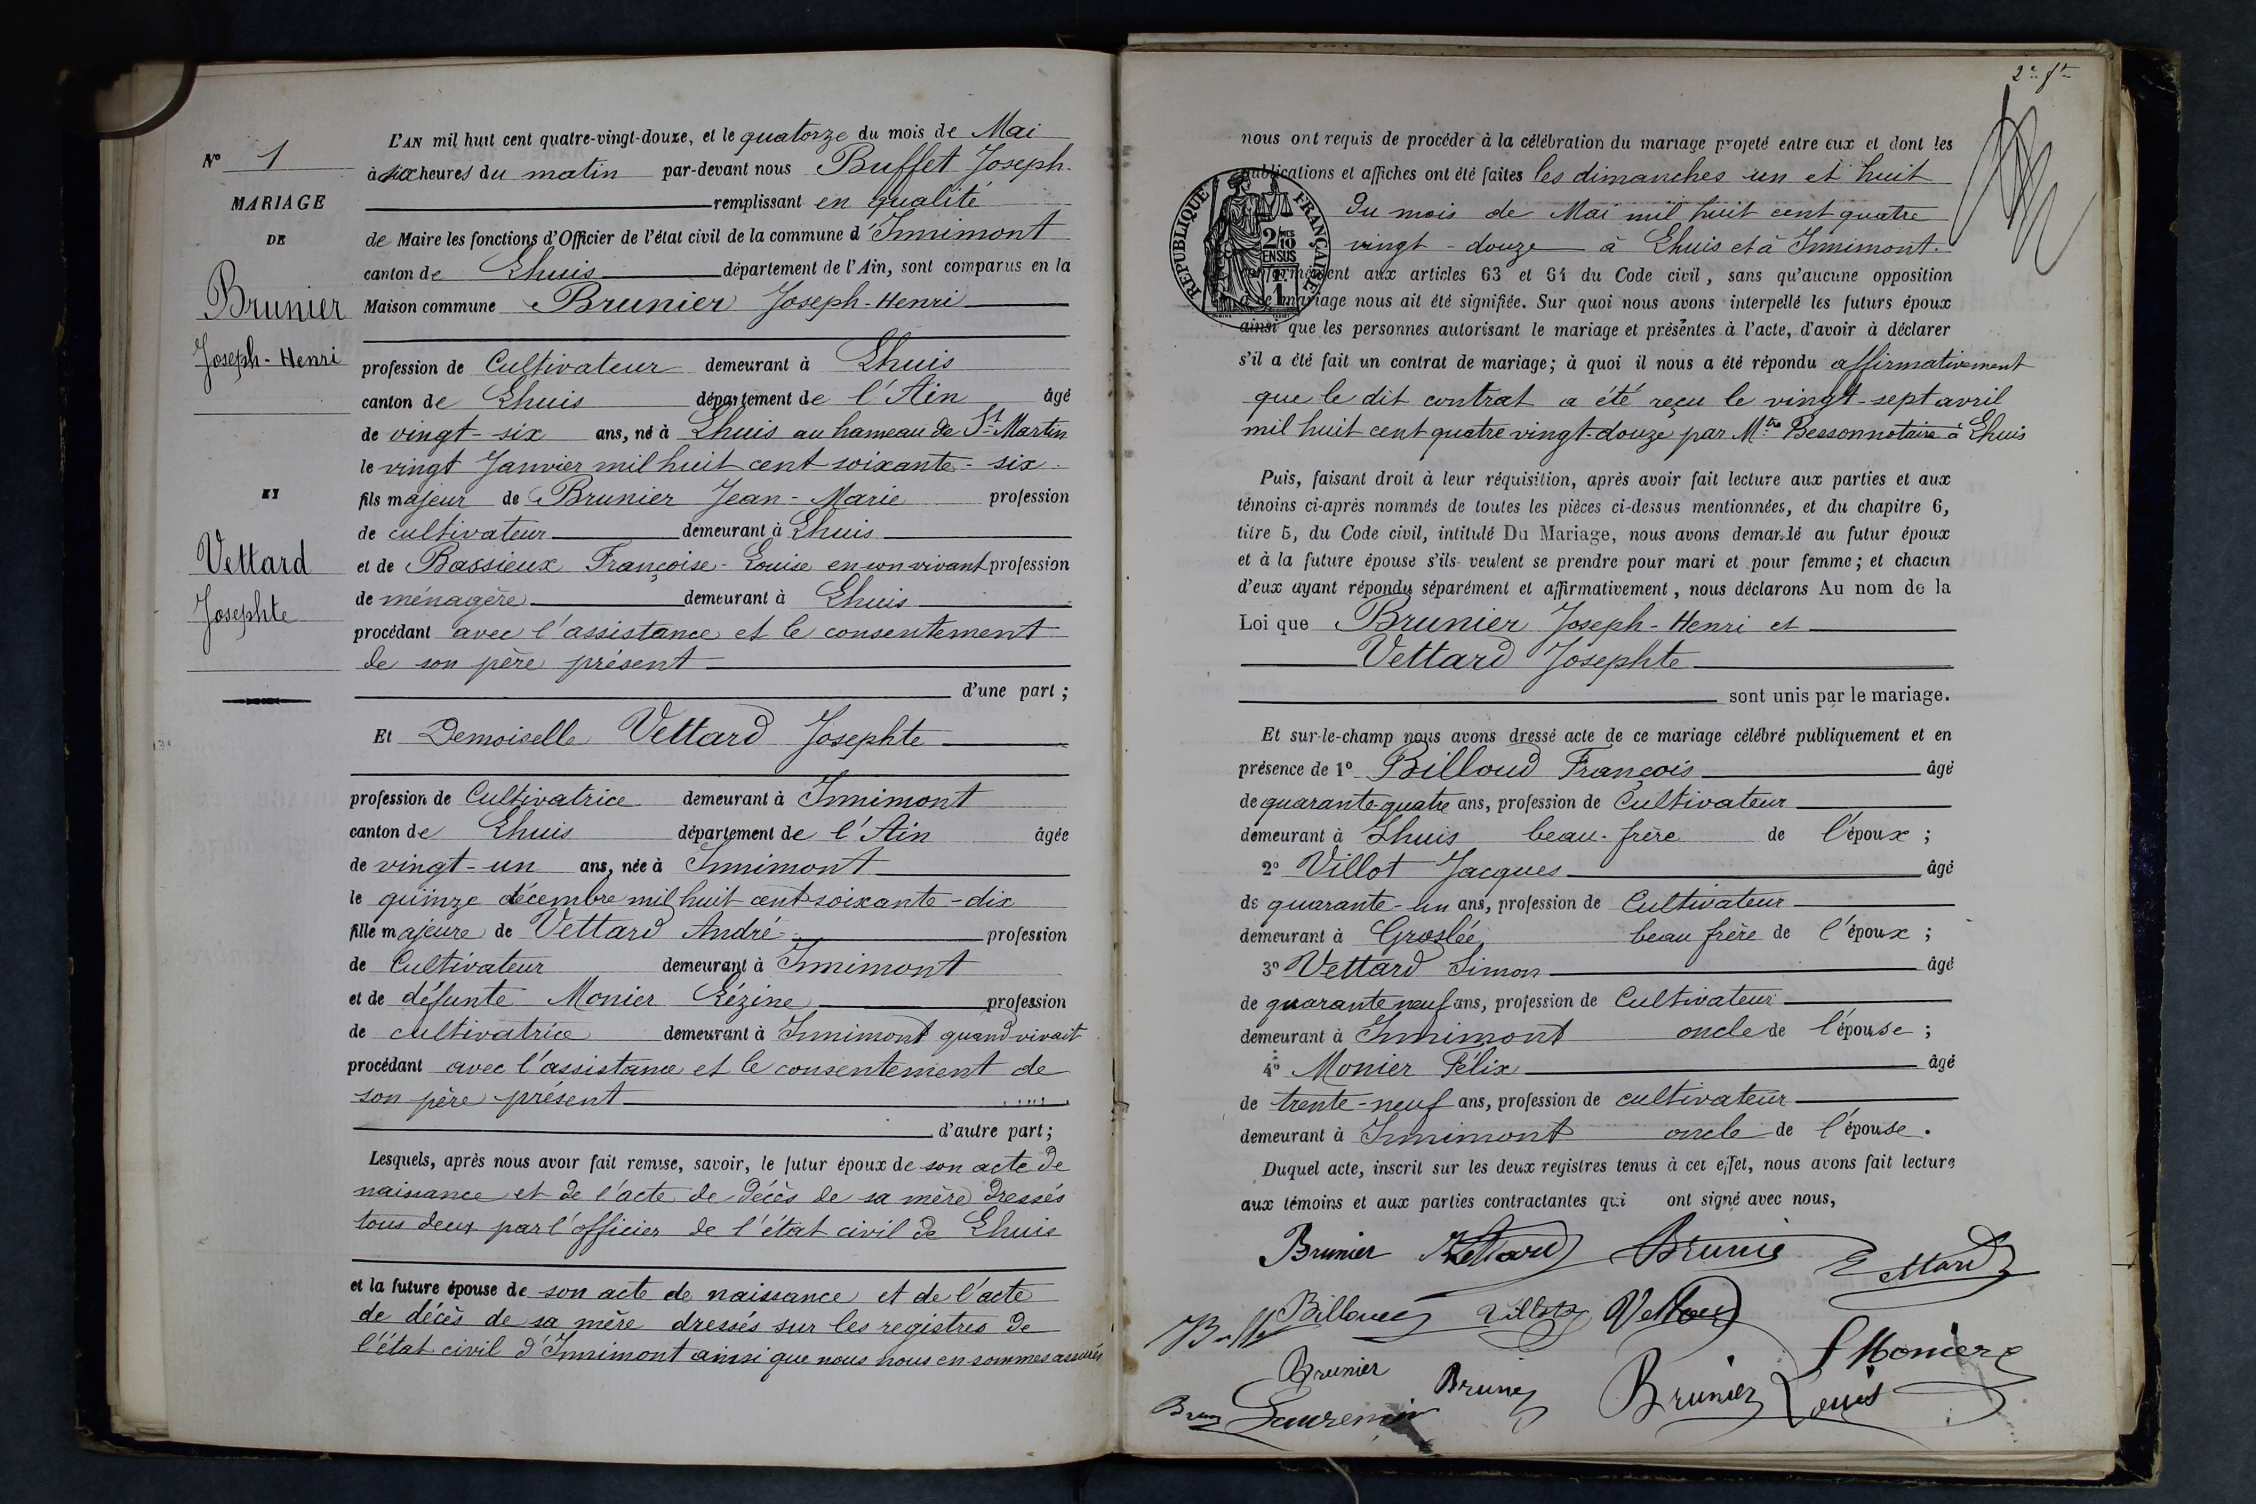 N° 1
MARIAGE
DE
Brunier
Joseph-Henri
ET
Vettard
Josephte
L'AN mil huit cent quatre-vingt-douze, et le quatorze du mois de Mai
à six heures du matin par-devant nous Buffet Joseph.
remplissant en qualité
de Maire les fonctions d'Officier de l'état civil de la commune d'Innimont
canton de Lhuis département de l'Ain, sont comparus en la
Maison commune Brunier Joseph-Henri
profession de Cultivateur demeurant à Lhuis
canton de Lhuis département de l'Ain âgé
de vingt-six ans, né à Lhuis au hameau de St Martin
le vingt Janvier mil huit cent soixante-six.
fils majeur de Brunier Jean-Marie profession
de cultivateur demeurant à Lhuis
et de Bassieux Françoise-Louise en son vivant profession
de ménagère demeurant à Lhuis
procédant avec l'assistance et le consentement
de son père présent
d'une part ;
Et Demoiselle Vettard Josephte
profession de Cultivatrice demeurant à Innimont
canton de Lhuis département de l'Ain âgée
de vingt-un ans, née à Innimont
le quinze décembre mil huit cent soixante-dix
fille majeure de Vettard André profession
de Cultivateur demeurant à Innimont
et de défunte Monier Rézine profession
de cultivatrice demeurant à Innimont quand vivait
procédant avec l'assistance et le consentement de
son père présent
d'autre part ;
Lesquels, après nous avoir fait remise, savoir, le futur époux de son acte de
naissance et de l'acte de décès de sa mère dressés
tous deux par l'officier de l'état civil de Lhuis
et la future épouse de son acte de naissance et de l'acte
de décès de sa mère dressés sur les registres de
l'état civil d'Innimont ainsi que nous nous en sommes assurés
2e ft
nous ont requis de procéder à la célébration du mariage projeté entre eux et dont les
publications et affiches ont été faites les dimanches un et huit
du mois de Mai mil huit cent quatre
vingt-douze à Lhuis et à Innimont.
RÉPUBLIQUE FRANÇAISE
2/10 EN SUS
1
conformément aux articles 63 et 64 du Code civil, sans qu'aucune opposition
à ce mariage nous ait été signifiée. Sur quoi nous avons interpellé les futurs époux
ainsi que les personnes autorisant le mariage et présentes à l'acte, d'avoir à déclarer
s'il a été fait un contrat de mariage ; à quoi il nous a été répondu affirmativement
que le dit contrat a été reçu le vingt-sept avril
mil huit cent quatre vingt-douze par Mtre Besson notaire à Lhuis
Puis, faisant droit à leur réquisition, après avoir fait lecture aux parties et aux
témoins ci-après nommés de toutes les pièces ci-dessus mentionnées, et du chapitre 6,
titre 5, du Code civil, intitulé Du Mariage, nous avons demandé au futur époux
et à la future épouse s'ils veulent se prendre pour mari et pour femme ; et chacun
d'eux ayant répondu séparément et affirmativement, nous déclarons Au nom de la
Loi que Brunier Joseph-Henri et
Vettard Josephte
sont unis par le mariage.
Et sur-le-champ nous avons dressé acte de ce mariage célébré publiquement et en
présence de 1° Billoud François âgé
de quarante-quatre ans, profession de Cultivateur
demeurant à Lhuis beau-frère de l'époux ;
2° Villot Jacques âgé
de quarante-un ans, profession de Cultivateur
demeurant à Groslée beau frère de l'époux ;
3° Vettard Simon âgé
de quarante neuf ans, profession de Cultivateur
demeurant à Innimont oncle de l'épouse ;
4° Monier Félix âgé
de trente-neuf ans, profession de cultivateur
demeurant à Innimont oncle de l'épouse.
Duquel acte, inscrit sur les deux registres tenus à cet effet, nous avons fait lecture
aux témoins et aux parties contractantes qui ont signé avec nous,
Brunier Vettard Brunie Vettard
Billoud Villot Vettard
F Monier
Brunier Brunier Brunier Louis
Laurencin